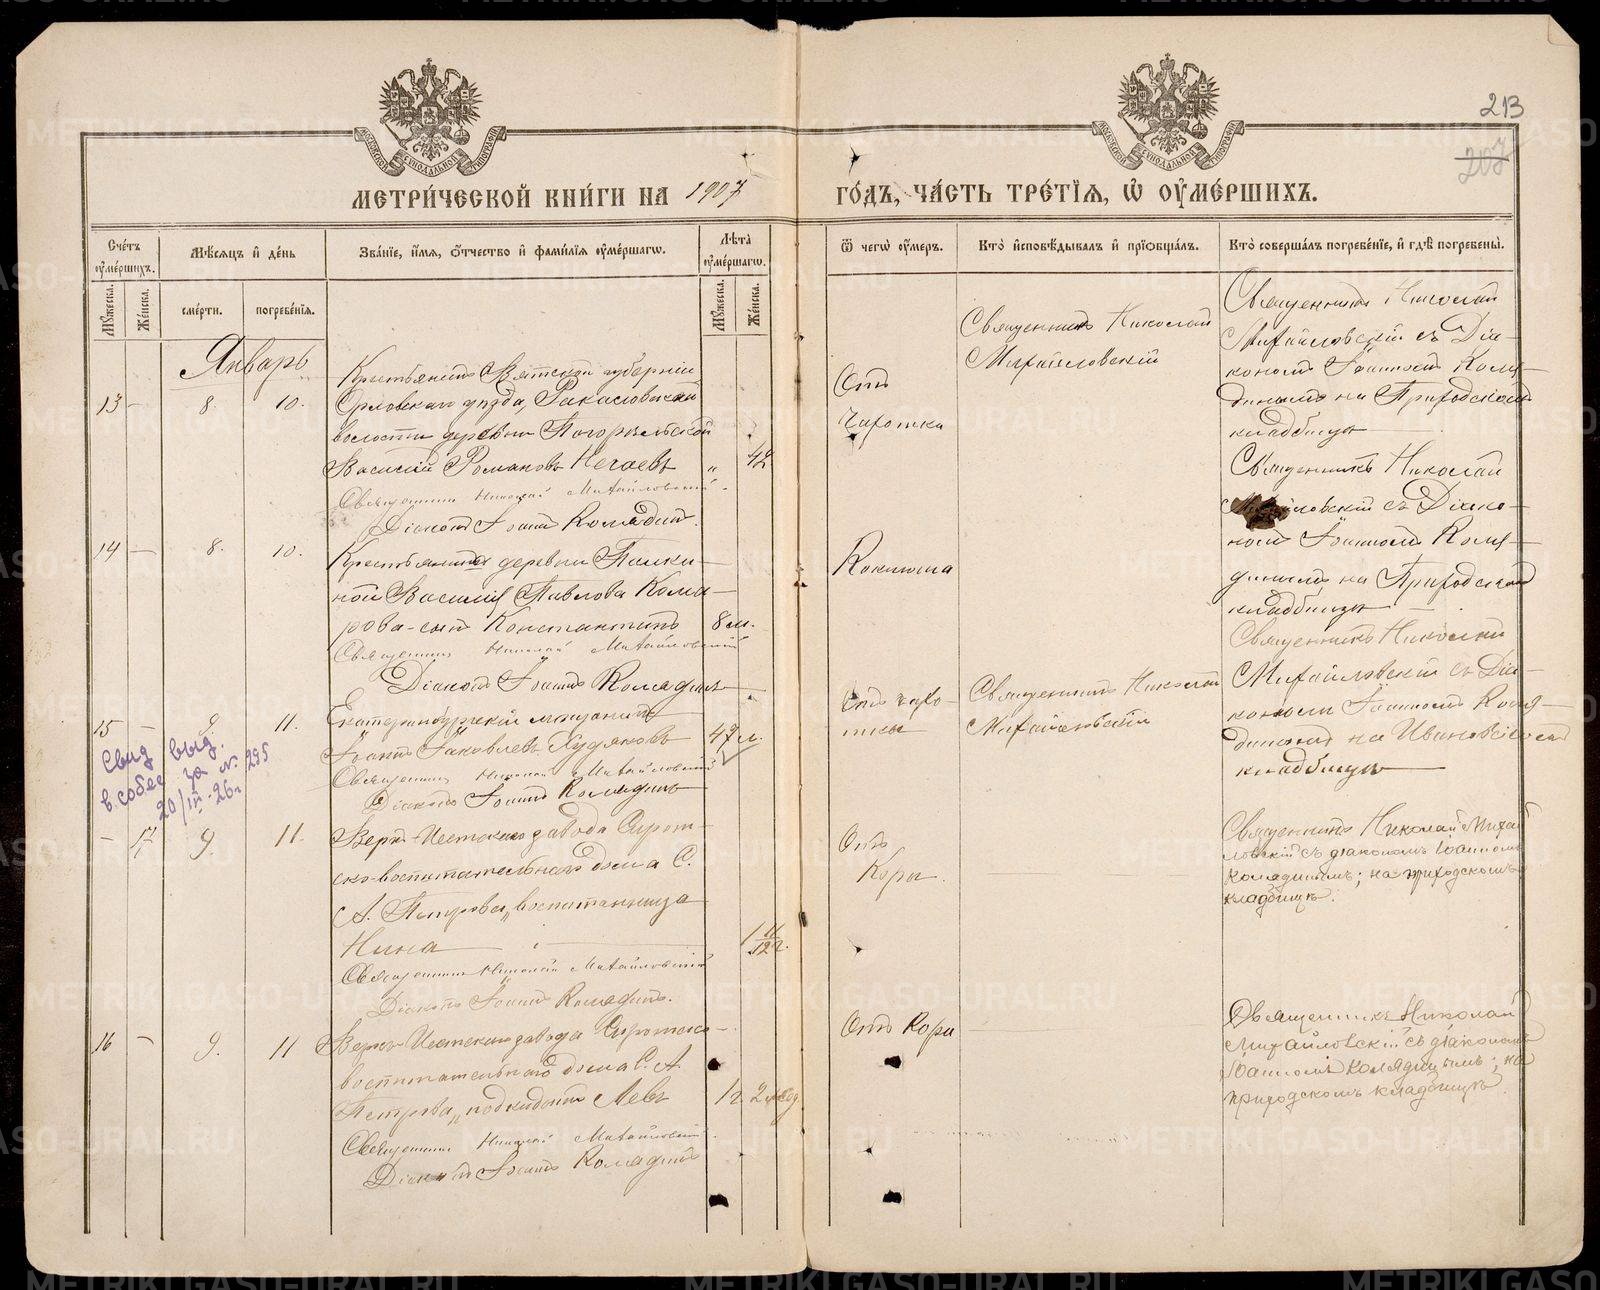 213
207
МЕТРИ́ЧЕСКОЙ КНИ́ГИ НА 1907 ГО́ДЪ, ЧА́СТЬ ТРЕ́ТІЯ, Ѿ ОУМЕ́РШИХЪ.
Сче́тъ оуме́ршихъ.
Мѣ́сяцъ и де́нь
Зва́ніе, и́мя, о́тчество и фами́лія оуме́ршагѡ.
Лѣ́та оуме́ршагѡ.
Ѿ чегѡ̀ оу́меръ.
Кто̀ исповѣ́дывалъ и пріѡбща́лъ.
Кто̀ соверша́лъ погребе́ніе, и гдѣ̀ погребены̀.
Му́жеска.
Же́нска.
сме́рти.
погребе́нія.
Му́жеска.
Же́нска.
Январь
13 — 8. 10.
Крестьянинъ Вятской губерніи
Орловскаго уѣзда,
волости деревни
Василій Романовъ Нечаевъ „ 42
Священникъ Николай Михайловскій
Діаконъ Іоаннъ Колядинъ.
Отъ
чахотки
Священникъ Николай
Михайловскій
Священникъ Николай
Михайловскій съ Діа-
кономъ Іоанномъ Коля-
динымъ на Приходскомъ
кладбищѣ
14 — 8. 10.
Крестьянина деревни Палки-
ной Василія Павлова Кома-
рова-сынъ Константинъ 8 м.
Священникъ Николай Михайловскій
Діаконъ Іоаннъ Колядинъ
Коклюша
Священникъ Николай
Михайловскій съ Діако-
номъ Іоанномъ Коля-
динымъ на Приходскомъ
кладбищѣ
15 — 9. 11.
Екатеринбургскій мѣщанинъ
Іоаннъ Іаковлевъ Худяковъ 47 л.
Священникъ Николай Михайловскій
Діаконъ Іоаннъ Колядинъ
Отъ чахо-
тки
Священникъ Николай
Михайловскій
Священникъ Николай
Михайловскій съ Діа-
кономъ Іоанномъ Коля-
динымъ на Ивановскомъ
кладбищѣ
Свид выд.
в собес за № 295
20/III-26г
— 17 9. 11.
Верхъ-Исетскаго завода Сирот-
ско-воспитательнаго дома С.
А. Петрова, воспитанница
Нина 1 11/12 г.
Священникъ Николай Михайловскій
Діаконъ Іоаннъ Колядинъ.
Отъ
Кори.
Священникъ Николай Михай
ловскій съ діакономъ Іоанномъ
Колядинымъ; на приходскомъ
кладбищѣ.
16 — 9. 11
Верхъ-Исетскаго завода Сиротско-
воспитательнаго дома С. А.
Петрова, подкидышъ Левъ 1 г. 2
Священникъ Николай Михайловскій
Діаконъ Іоаннъ Колядинъ
Отъ Кори
Священникъ Николай
Михайловскій съ діакономъ
Іоанномъ Колядинымъ; на
приходскомъ кладбищѣ.
METRIKI.GASO-URAL.RU